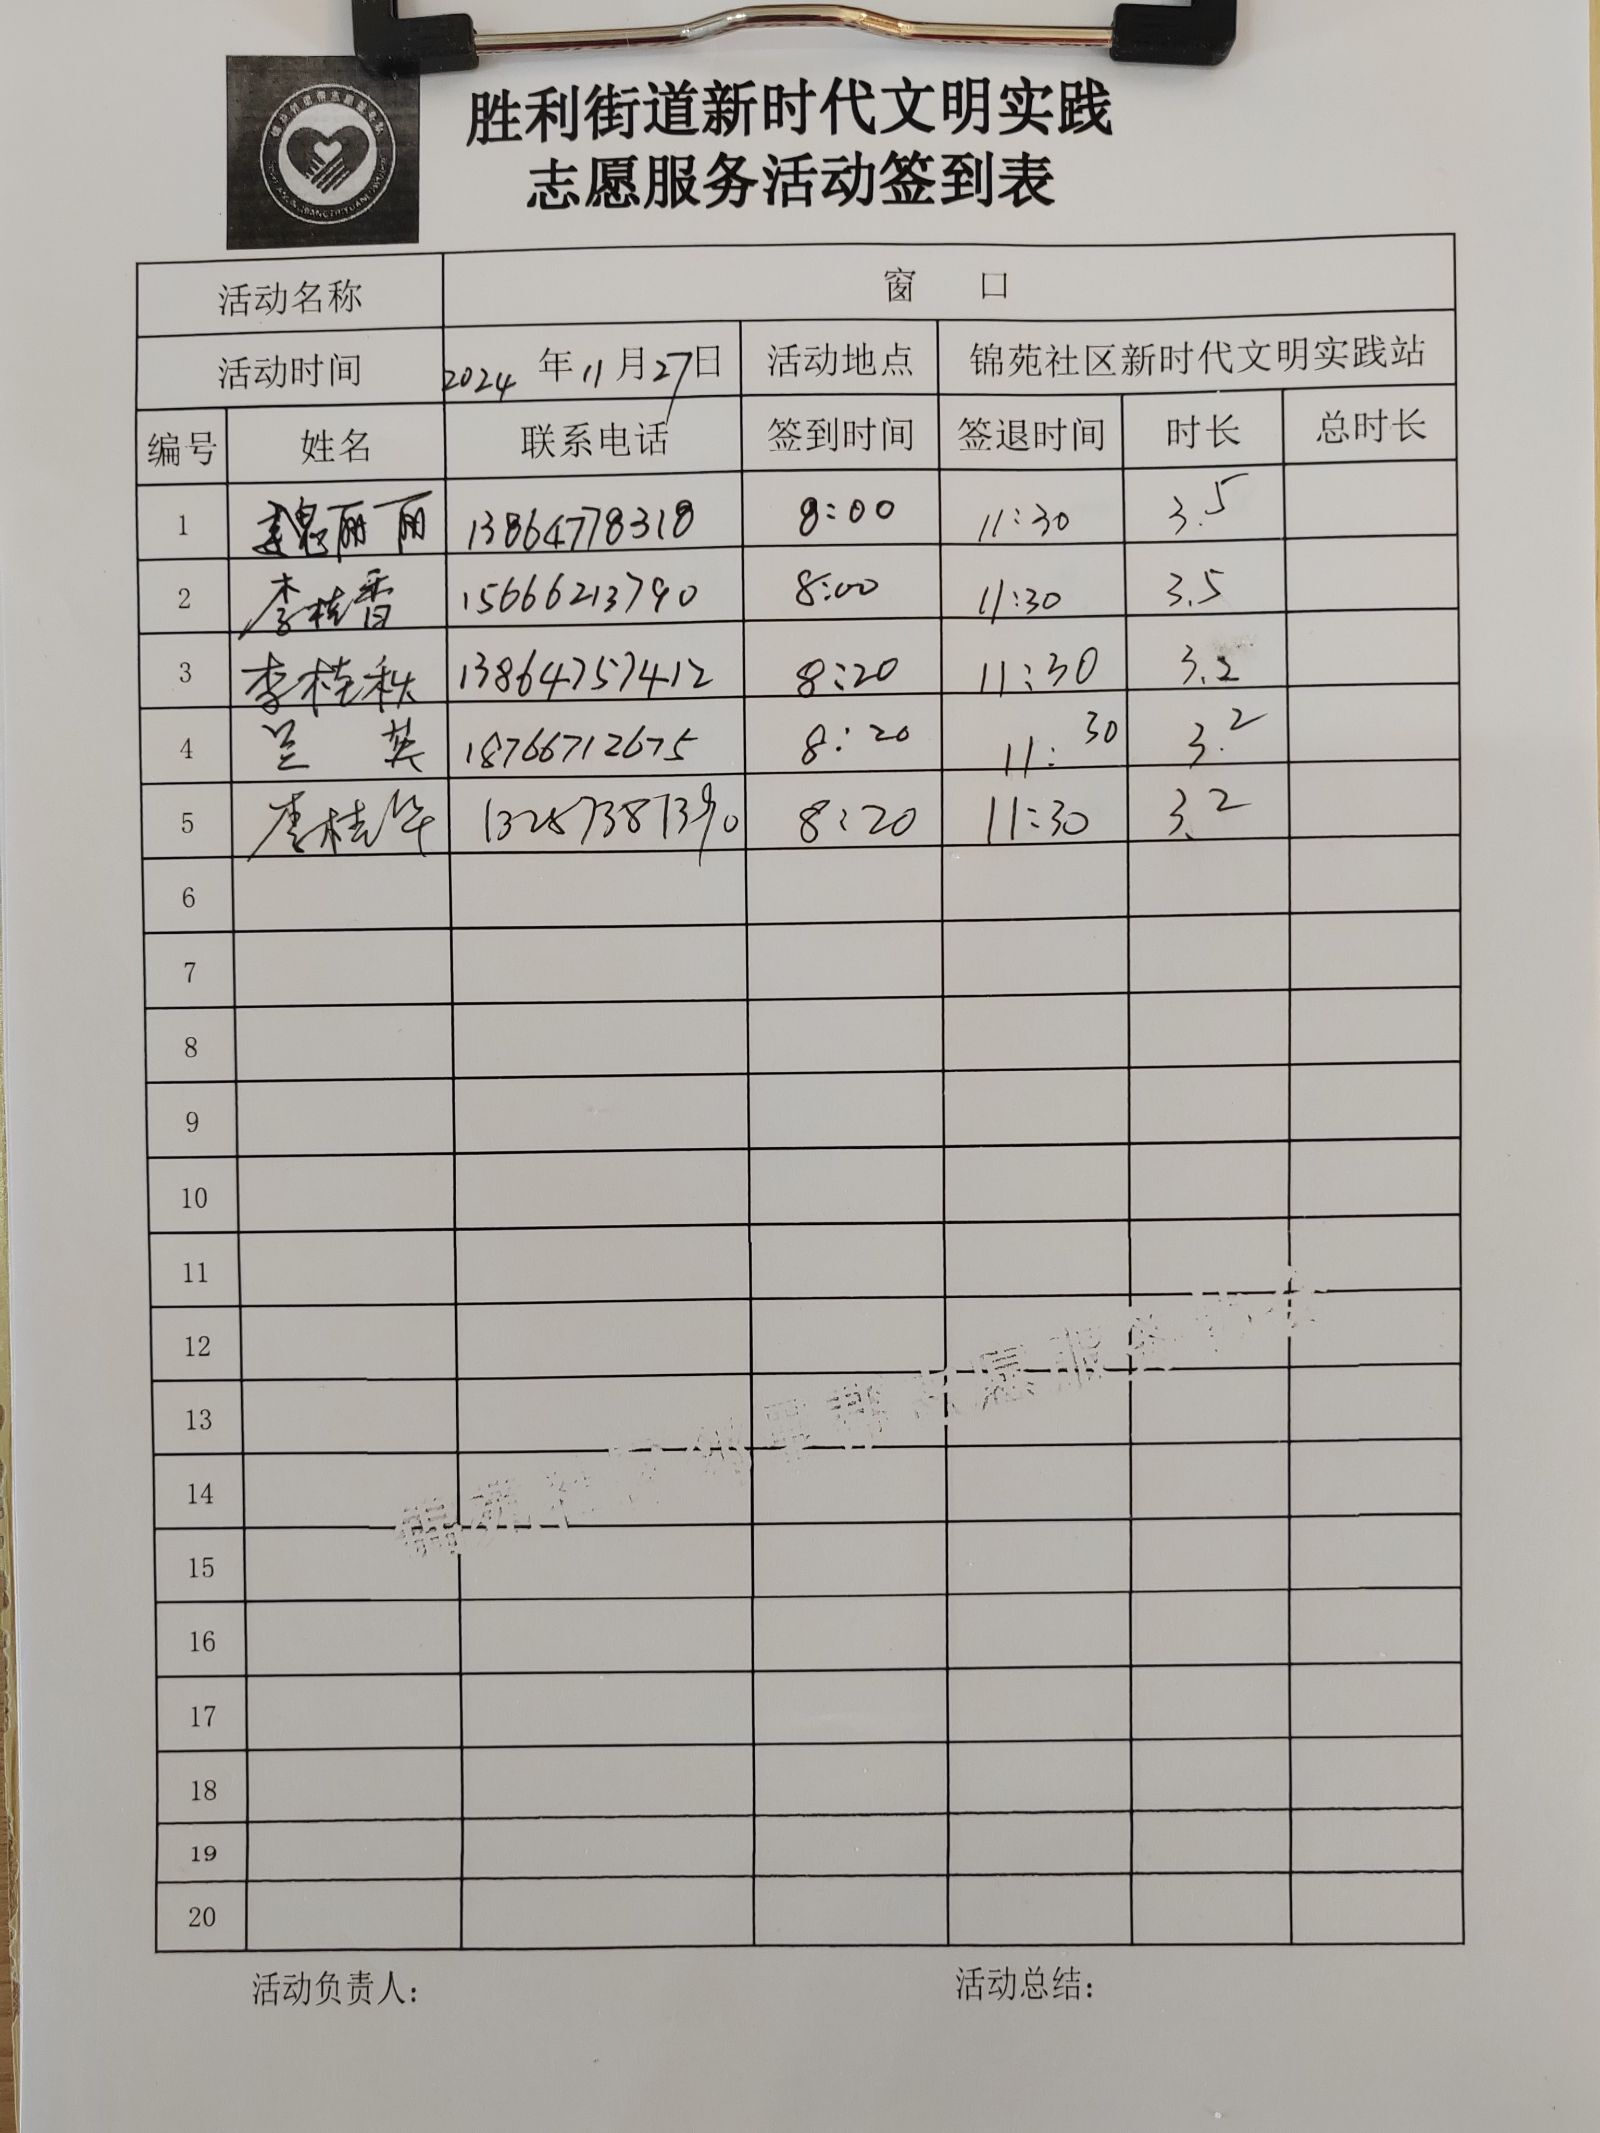 胜利街道新时代文明实践
志愿服务活动签到表
活动名称 窗 口
活动时间 2024 年 11 月 27 日 活动地点 锦苑社区新时代文明实践站
编号 姓名 联系电话 签到时间 签退时间 时长 总时长
1 丽丽 13864778318 8:00 11:30 3.5
2 李桂香 15666213790 8:00 11:30 3.5
3 李桂秋 13864757412 8:20 11:30 3.2
4 兰 英 18766712675 8:20 11:30 3.2
5 李桂华 13287387390 8:20 11:30 3.2
6
7
8
9
10
11
12
13
14
15
16
17
18
19
20
活动负责人: 活动总结: